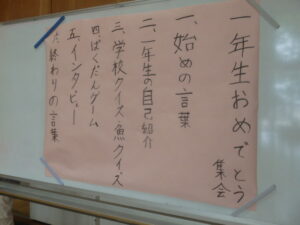 一年生おめでとう
集会
一、始めの言葉
二、一年生の自己紹介
三、学校クイズ・魚クイズ
四、ばくだんゲーム
五、インタビュー
六、終わりの言葉